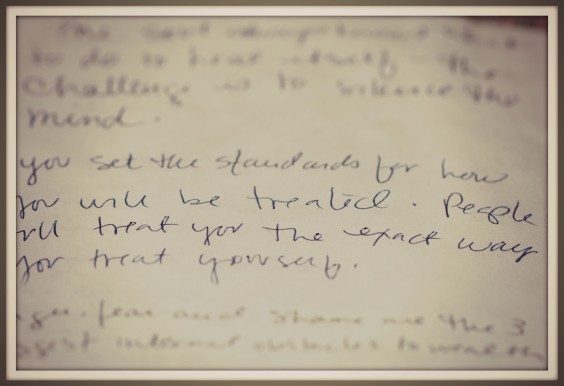 to do to heal itself - the
Challenge is to silence the
mind.
you set the standards for how
you will be treated. People
will treat you the exact way
you treat yourself.
fear and shame are the 3
internal obstacles to wealth